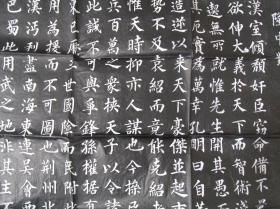 漢室傾頹奸臣竊命備不量
欲伸大義於天下而智術淺
無所就惟先生開其愚
其厄實為萬幸孔明曰自董
造逆以來天下豪傑並起
勢不及袁紹而竟能克紹者
惟天時抑亦人謀也今操
兵百萬之眾挾天子以令諸
此誠不可與爭鋒孫權據有
三世國險而民附此
用為援而不可圖也荊州北
漢沔利盡南海東連吳會西
巴蜀此用武之地非其主不